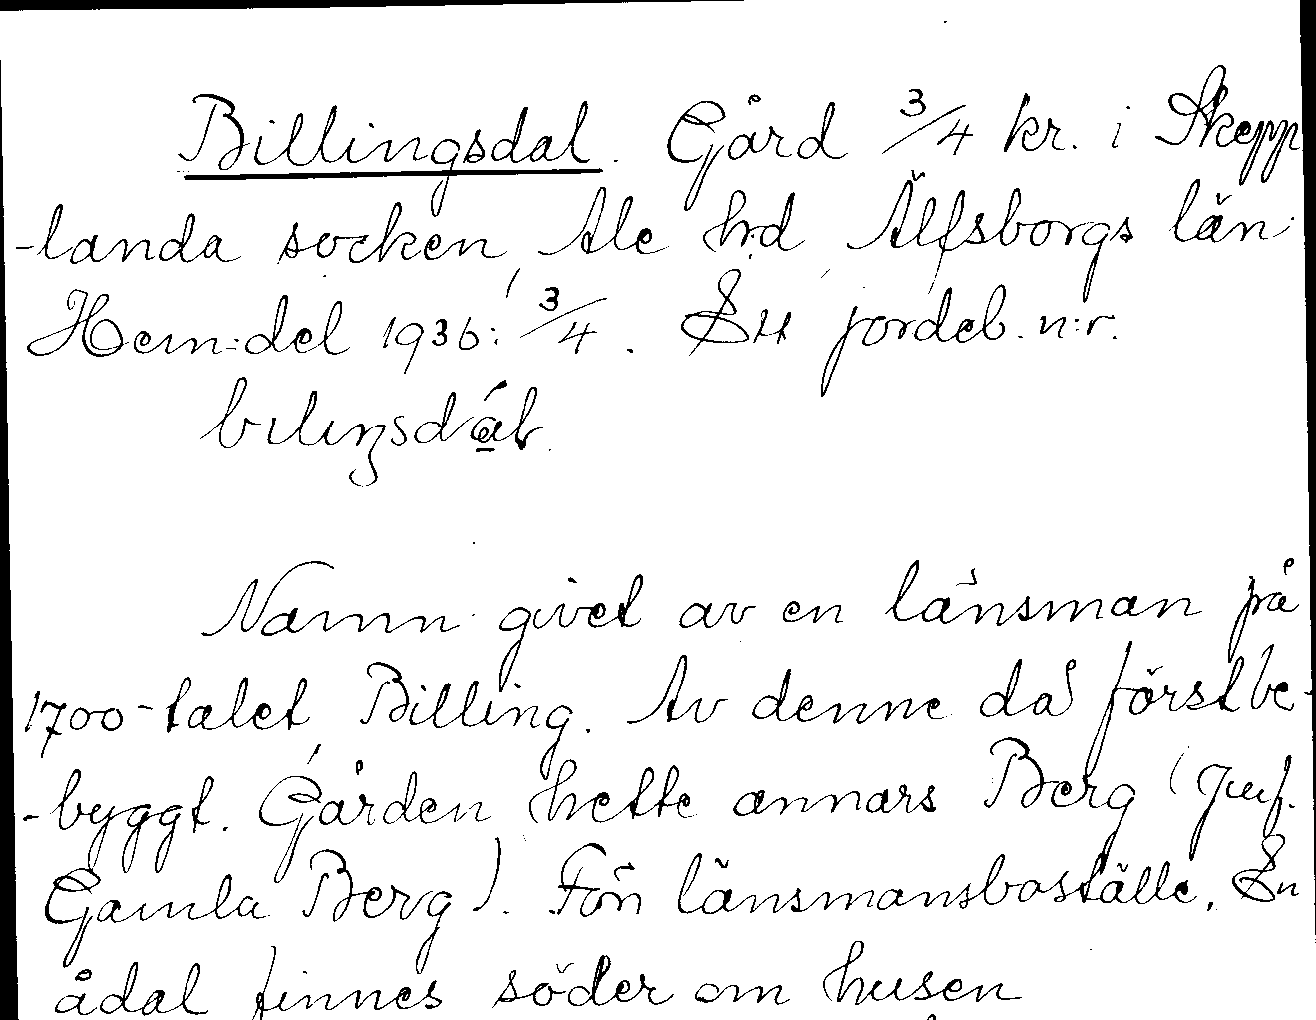 Billingsdal. Gård 3/4 kr. i Skepp
-landa socken, Ale hrd, Älfsborgs län.
Hem:del 1936: 3/4. Ett jordeb. n:r.
Namn givet av en länsman på
1700-talet, Billing. Av denne då först be-
-byggt. Gården hette annars Berg (Jmf.
Gamla Berg). Förr länsmansboställe. En
ådal finnes söder om husen